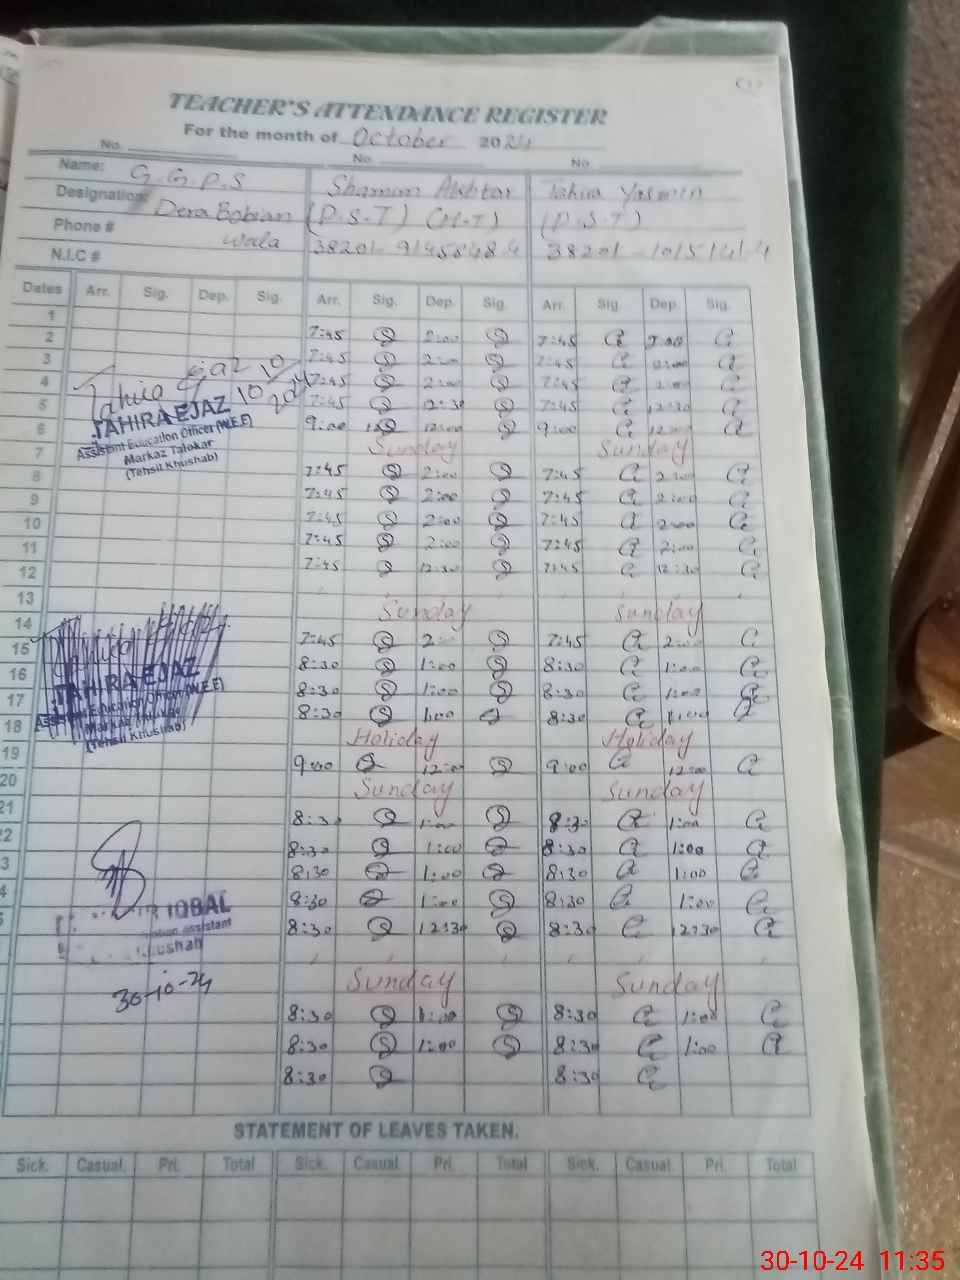 TEACHER'S ATTENDANCE REGISTER
For the month of October 2024
No. No. No.
Name: G.G.P.S Shamim Akhtar Tahira Yasmin
Designation: Dera Bobian (P.S.T) (H-T) (P.S.T)
Phone # wala 38201-9145848-4 38201-1015141-4
N.I.C #
Dates Arr. Sig. Dep. Sig. Arr. Sig. Dep. Sig. Arr. Sig. Dep. Sig.
1
2 7:45 2:00 7:45 2:00
3 7:45 2:00 7:45 2:00
4 7:45 2:00 7:45 2:00
5 7:45 12:30 7:45 12:30
6 9:00 12:00 9:00 12:00
7 Sunday Sunday
8 7:45 2:00 7:45 2:00
9 7:45 2:00 7:45 2:00
10 7:45 2:00 7:45 2:00
11 7:45 2:00 7:45 2:00
12 7:45 12:30 7:45 12:30
13
14 Sunday Sunday
15 7:45 2:00 7:45 2:00
16 8:30 1:00 8:30 1:00
17 8:30 1:00 8:30 1:00
18 8:30 1:00 8:30 1:00
Holiday Holiday
19 9:00 12:00 9:00 12:00
20 Sunday Sunday
21 8:30 1:00 8:30 1:00
2 8:30 1:00 8:30 1:00
3 8:30 1:00 8:30 1:00
4 8:30 1:00 8:30 1:00
5 8:30 12:30 8:30 12:30
Sunday Sunday
8:30 1:00 8:30 1:00
8:30 1:00 8:30 1:00
8:30 8:30
Tahira Ejaz 10/10/2024
TAHIRA EJAZ
Assistant Education Officer (W.E.E)
Markaz Talokar
(Tehsil Khushab)
TAHIRA EJAZ
Assistant Education Officer (W.E.E)
Markaz
(Tehsil Khushab)
IQBAL
assistant
Khushab
30-10-24
STATEMENT OF LEAVES TAKEN.
Sick. Casual. Pri. Total Sick. Casual. Pri. Total Sick. Casual. Pri. Total
30-10-24 11:35